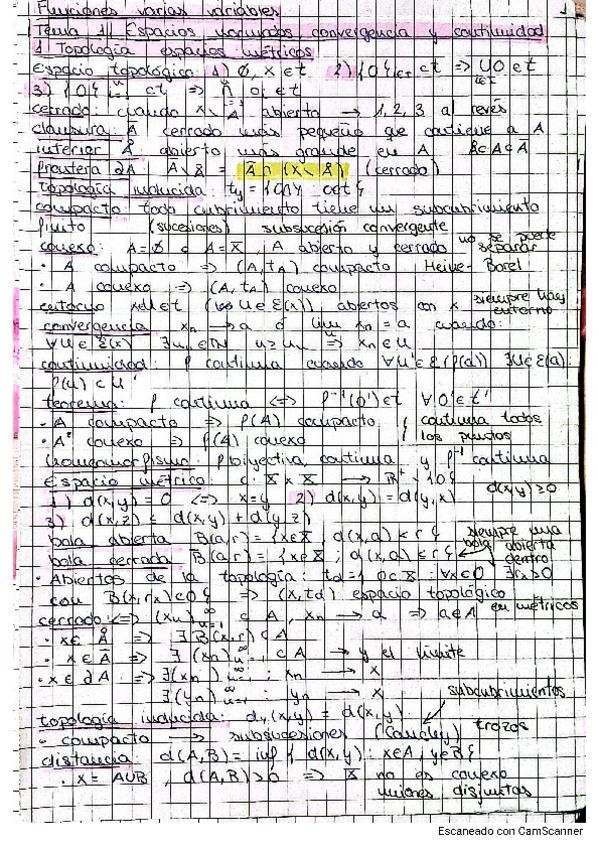 Funciones varias variables 1
Tema 1 Espacios normados convergencia y continuidad
1 Topología espacios métricos
Espacio topológico: 1) ∅, X ∈ t 2) {O} ⊂ t => ∪O ∈ t
3) {O} ⊂ t => ∩ O ∈ t
cerrado: cuando X \ A abierto → 1, 2, 3 al revés
clausura: Ā cerrado más pequeño que contiene a A
interior Å: abierto más grande en A Å ⊂ A ⊂ Ā
frontera ∂A Ā \ Å = Ā ∩ (X \ Å) (cerrado)
topología inducida: t_y = {O∩Y O∈t}
compacto: todo cubrimiento tiene un subcubrimiento
finito (sucesiones) subsucesión convergente
conexo: A=∅ o A=X, A abierto y cerrado no se puede separar
· A compacto => (A, t_A) compacto Heine-Borel
· A conexo => (A, t_A) conexo
entorno x∈U∈t (U∈Ɛ(x)), abiertos con x siempre hay entorno
convergencia x_n → a o lim x_n = a cuando:
∀U ∈ Ɛ(x) ∃ n_u ∈ ℕ n ≥ n_u => x_n ∈ U
continuidad: f continua cuando ∀U' ∈ Ɛ(f(a)) ∃U ∈ Ɛ(a):
f(U) ⊂ U'
teorema: f continua <=> f⁻¹(O') ∈ t ∀O' ∈ t'
· A compacto => f(A) compacto } continua todos
· A conexo => f(A) conexo los puntos
homeomorfismo: f biyectiva, continua y f⁻¹ continua
Espacio métrico: d: X × X → ℝ⁺ ∪ {0}
1) d(x,y) = 0 <=> x=y 2) d(x,y) = d(y,x) d(x,y) ≥ 0
3) d(x,z) ≤ d(x,y) + d(y,z)
bola abierta B(a,r) = {x∈X, d(x,a) < r} siempre una
bola cerrada B̄(a,r) = {x∈X; d(x,a) ≤ r} bola abierta dentro
· Abiertos de la topología: t_d = {O⊂X: ∀x∈O ∃r_x>0
con B(x,r_x) ⊂ O} => (X, t_d) espacio topológico
cerrado: <=> (x_n) ⊂ A, x_n → a => a∈A en métricos
· x∈ Å => ∃ B(x,r) ⊂ A
· x∈ Ā => ∃ (x_n) ⊂ A → y el límite
· x∈ ∂A => ∃ (x_n) : x_n → x
∃ (y_n) : y_n → x
subcubrimientos
topología inducida: d_y(x,y) = d(x,y)
· compacto → subsucesiones (Cauchy) trozos
distancia: d(A,B) = inf { d(x,y): x∈A, y∈B}
· X = A∪B, d(A,B) > 0 => X no es conexo
uniones disjuntas
Escaneado con CamScanner